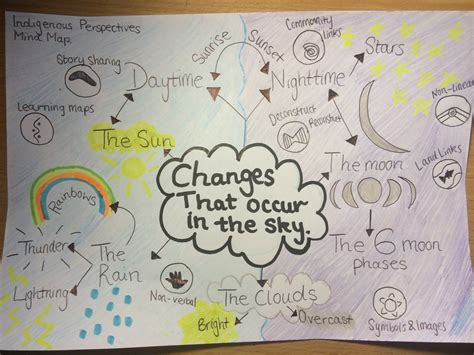 Indigenous Perspectives
Mind Map.
Story sharing
Learning maps
Daytime
Sunrise
Sunset
Nighttime
Community
Links
Stars
Non-linear
Deconstruct
Reconstruct
Land Links
The Sun
Changes
That occur
in the sky.
The moon
The 6 moon
phases
Rainbows
Thunder
Lightning
The
Rain
Non-verbal
The Clouds
Bright
Overcast
Symbols & Images